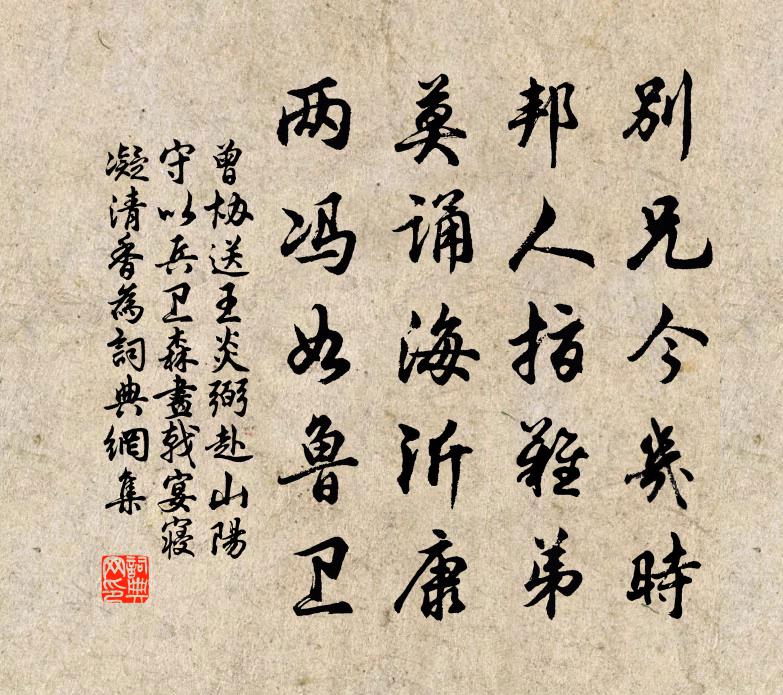 别兄今幾時
邦人指難弟
莫誦海沂康
两冯如鲁卫
曾协送王炎弼赴山陽
守以兵卫森畫戟宴寝
凝清香為詞典網集
詞典
网印